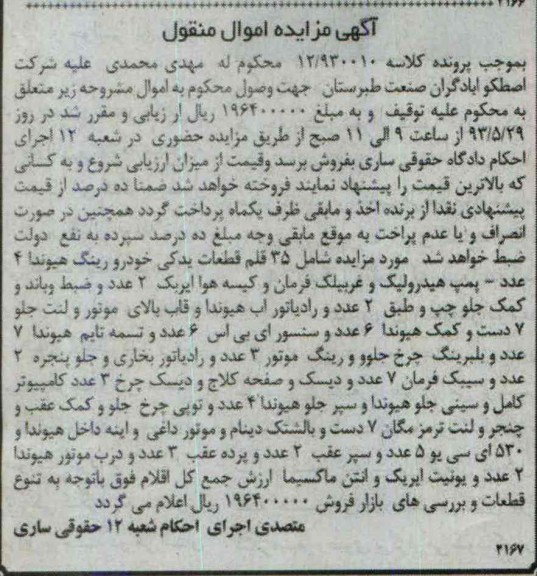 ۲۱۶۶
آگهی مزایده اموال منقول
بموجب پرونده کلاسه ۱۲/۹۳۰۰۱۰ محکوم له مهدی محمدی علیه شرکت
اصطکو ابادگران صنعت طبرستان جهت وصول محکوم به اموال مشروحه زیر متعلق
به محکوم علیه توقیف و به مبلغ ۱۹۶۴۰۰۰۰۰ ریال ار زیابی و مقرر شد در روز
۹۳/۵/۲۹ از ساعت ۹ الی ۱۱ صبح از طریق مزایده حضوری در شعبه ۱۲ اجرای
احکام دادگاه حقوقی ساری بفروش برسد وقیمت از میزان ارزیابی شروع و به کسانی
که بالاترین قیمت را پیشنهاد نمایند فروخته خواهد شد ضمنا ده درصد از قیمت
پیشنهادی نقدا از برنده اخذ و مابقی ظرف یکماه پرداخت گردد همچنین در صورت
انصراف و یا عدم پراخت به موقع مابقی وجه مبلغ ده درصد سپرده به نفع دولت
ضبط خواهد شد مورد مزایده شامل ۳۵ قلم قطعات یدکی خودرو رینگ هیوندا ۴
عدد – پمپ هیدرولیک و غربیلک فرمان و کیسه هوا ایربک ۲ عدد و ضبط وباند و
کمک جلو چپ و طبق ۲ عدد و رادیاتور اب هیوندا و قاب بالای موتور و لنت جلو
۷ دست و کمک هیوندا ۶ عدد و سنسور ای بی اس ۶ عدد و تسمه تایم هیوندا ۷
عدد و بلبرینگ چرخ جلوو و رینگ موتور ۳ عدد و رادیاتور بخاری و جلو پنجره ۲
عدد و سیبک فرمان ۷ عدد و دیسک و صفحه کلاج و دیسک چرخ ۳ عدد کامپیوتر
کامل و سینی جلو هیوندا و سپر جلو هیوندا ۴ عدد و توپی چرخ جلو و کمک عقب و
چنجر و لنت ترمز مگان ۷ دست و بالشتک دینام و موتور داغی و اینه داخل هیوندا و
۵۳۰ ای سی یو ۵ عدد و سپر عقب ۲ عدد و پرده عقب ۳ عدد و درب موتور هیوندا
۲ عدد و یونیت ایربک و انتن ماکسیما ارزش جمع کل اقلام فوق باتوجه به تنوع
قطعات و بررسی های بازار فروش ۱۹۶۴۰۰۰۰۰ ریال اعلام می گردد
متصدی اجرای احکام شعبه ۱۲ حقوقی ساری
۲۱۶۷